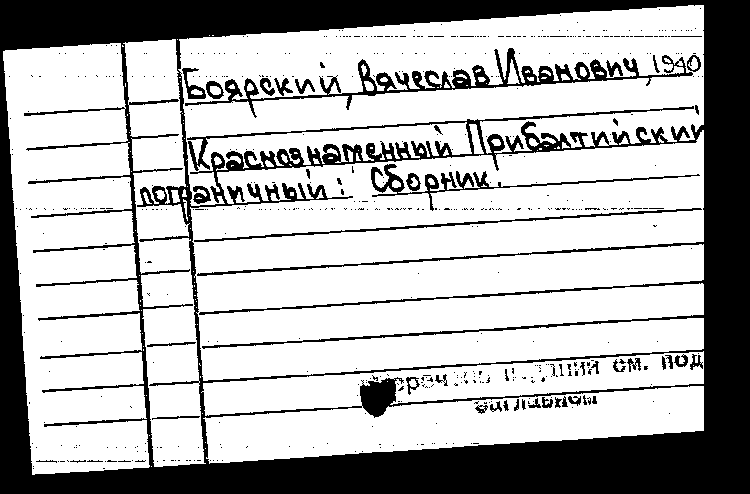 Боярский, Вячеслав Иванович, 1940
Краснознаменный Прибалтийский
пограничный: Сборник.
см. под
заглавием